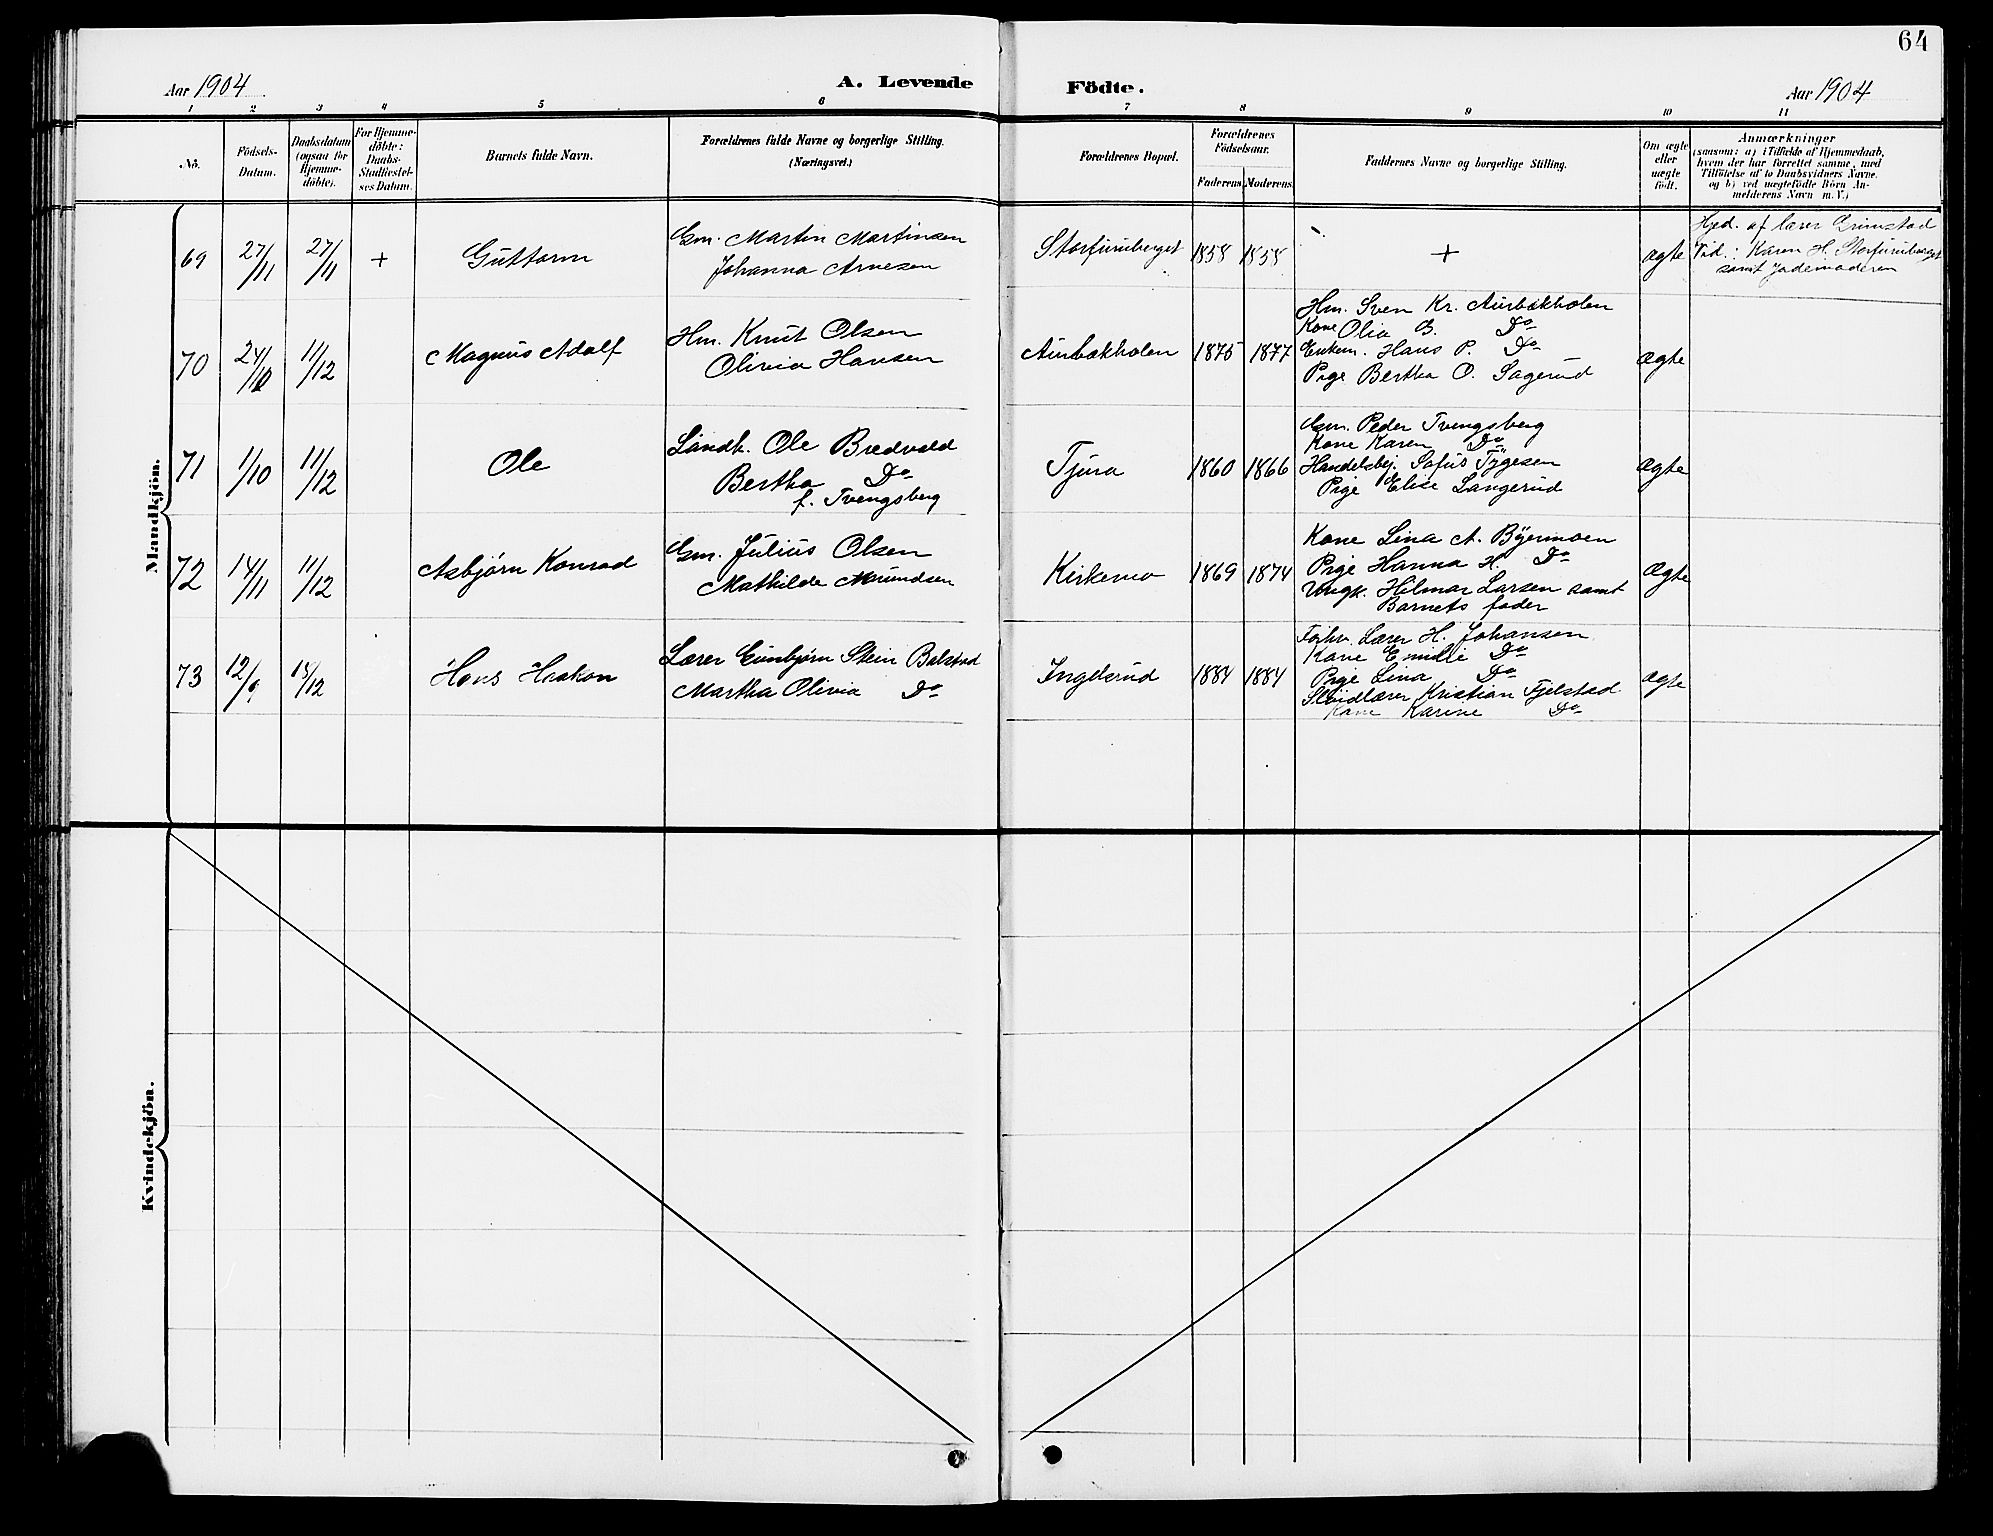 64
Aar 1904
A. Levende
Födte.
Aar 1904
1 2 3 4 5 6 7 8 9 10 11
No.
Födsels-
Datum.
Daabsdatum
(ogsaa for
Hjemme-
döbte).
For Hjemme-
döbte:
Daabs-
Stadfæstel-
ses Datum.
Barnets fulde Navn.
Forældrenes fulde Navne og borgerlige Stilling.
(Næringsvei.)
Forældrenes Bopæl.
Forældrenes
Födselsaar.
Faderens. Moderens.
Faddernes Navne og borgerlige Stilling.
Om ægte
eller
uægte
födt.
Anmærkninger
(saasom: a) i Tilfælde af Hjemmedaab,
hvem der har forrettet samme, med
Tilföielse af to Daabsvidners Navne,
og b) ved uægtefödte Börn An-
melderens Navn m. V.)
Mandkjön.
69 27/11 27/11 + Guttorm
Gm. Martin Martinsen
Johanna Arnesen
Storfuruberget 1858 1858 + ægte
Hjed. af lærer Grimstad
Vid.: Karen H. Storfuruberget
samt Jordemoderen
70 24/10 11/12 Magnus Adolf
Hm. Knut Olsen
Olivia Hansen
Aurbækholen 1875 1877
Hm. Sven Kr. Aurbækholen
Kone Olia B. Do
Enkem. Hans P. Do
Pige Bertha O. Sagerud
ægte
71 1/10 11/12 Ole
Landh. Ole Bredvold
Bertha Do
f. Tvengsberg
Tjura 1860 1866
Gm. Peder Tvengsberg
Kone Karen Do
Handelsbej. Sofus Tygesen
Pige Elise Langerud
ægte
72 14/11 11/12 Asbjørn Konrad
Gm. Julius Olsen
Mathilde Amundsen
Kirkemo 1869 1874
Kone Lina A. Byermoen
Pige Hanna H. Do
Ungk. Hilmar Larsen samt
Barnets fader
ægte
73 12/9 18/12 Hans Haakon
Lærer Gunbjørn Stein Bolstad
Martha Olivia Do
Ingelsrud 1884 1884
Lærer H. Johansen
Kone Emilie Do
Pige Lina Do
Sløidlærer Kristian Fjelstad
Kone Karine Do
ægte
Kvindekjön.